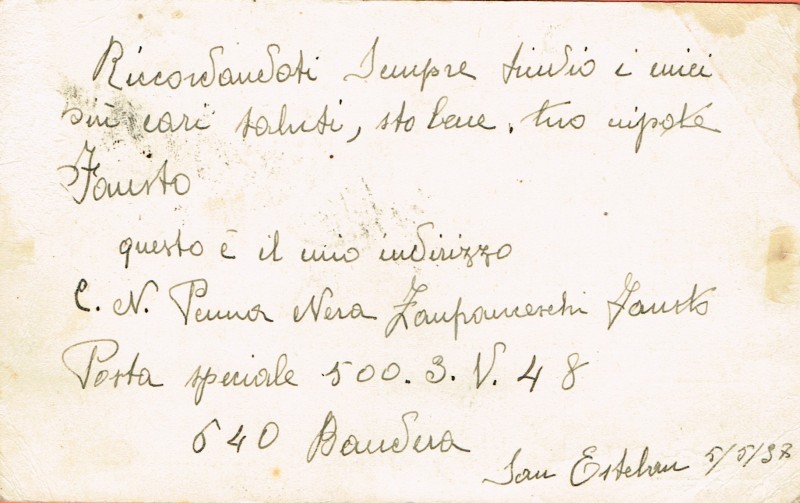 Riccordandoti Sempre t'invio i miei
più cari saluti, sto bene. tuo nipote
Fausto
questo è il mio indirizzo
C. N. Penna Nera Zanfranceschi Fausto
Posta speciale 500. 3. V. 48
640 Bandera
San Esteban 5/5/37